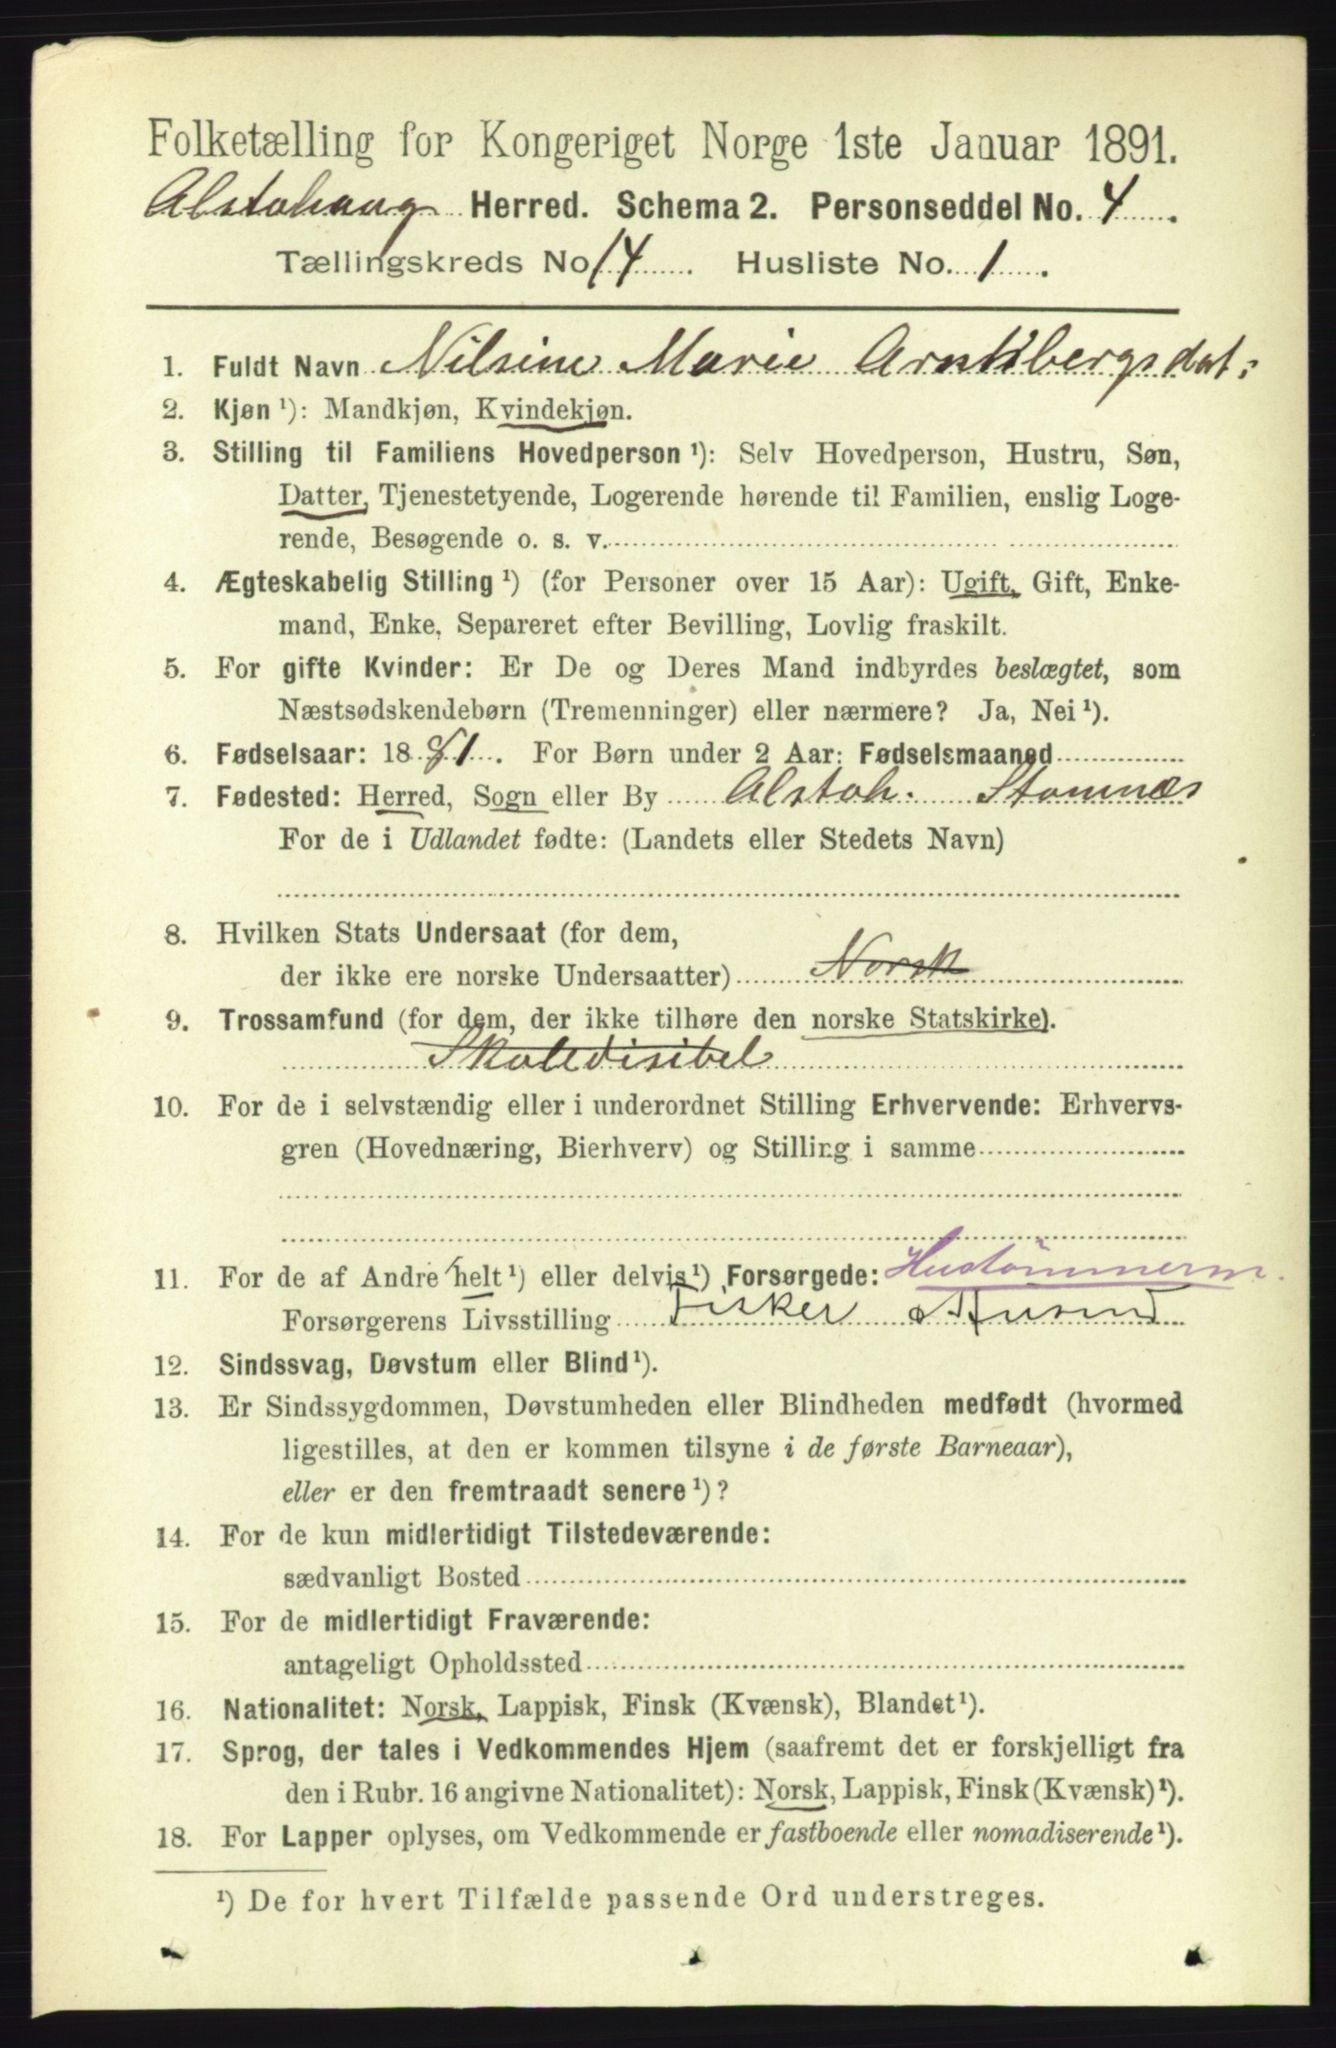 Folketælling for Kongeriget Norge 1ste Januar 1891.
Alstahaug Herred. Schema 2. Personseddel No. 4.
Tællingskreds No 14. Husliste No. 1.
1. Fuldt Navn Nilsine Marie Arntsbergsdat:
2. Kjøn ¹): Mandkjøn, Kvindekjøn.
3. Stilling til Familiens Hovedperson ¹): Selv Hovedperson, Hustru, Søn,
Datter, Tjenestetyende, Logerende hørende til Familien, enslig Loge-
rende, Besøgende o. s. v.
4. Ægteskabelig Stilling ¹) (for Personer over 15 Aar): Ugift, Gift, Enke-
mand, Enke, Separeret efter Bevilling, Lovlig fraskilt.
5. For gifte Kvinder: Er De og Deres Mand indbyrdes beslægtet, som
Næstsødskendebørn (Tremenninger) eller nærmere? Ja, Nei ¹).
6. Fødselsaar: 1881. For Børn under 2 Aar: Fødselsmaaned
7. Fødested: Herred, Sogn eller By Alstah. Stamnæs
For de i Udlandet fødte: (Landets eller Stedets Navn)
8. Hvilken Stats Undersaat (for dem,
der ikke ere norske Undersaatter) Norsk
9. Trossamfund (for dem, der ikke tilhøre den norske Statskirke).
10. For de i selvstændig eller i underordnet Stilling Erhvervende: Erhvervs-
gren (Hovednæring, Bierhverv) og Stilling i samme
11. For de af Andre helt ¹) eller delvis ¹) Forsørgede: Hustømmerm.
Forsørgerens Livsstilling Fisker
12. Sindssvag, Døvstum eller Blind ¹).
13. Er Sindssygdommen, Døvstumheden eller Blindheden medfødt (hvormed
ligestilles, at den er kommen tilsyne i de første Barneaar),
eller er den fremtraadt senere ¹)?
14. For de kun midlertidigt Tilstedeværende:
sædvanligt Bosted
15. For de midlertidigt Fraværende:
antageligt Opholdssted
16. Nationalitet: Norsk, Lappisk, Finsk (Kvænsk), Blandet ¹).
17. Sprog, der tales i Vedkommendes Hjem (saafremt det er forskjelligt fra
den i Rubr. 16 angivne Nationalitet): Norsk, Lappisk, Finsk (Kvænsk) ¹).
18. For Lapper oplyses, om Vedkommende er fastboende eller nomadiserende ¹).
¹) De for hvert Tilfælde passende Ord understreges.